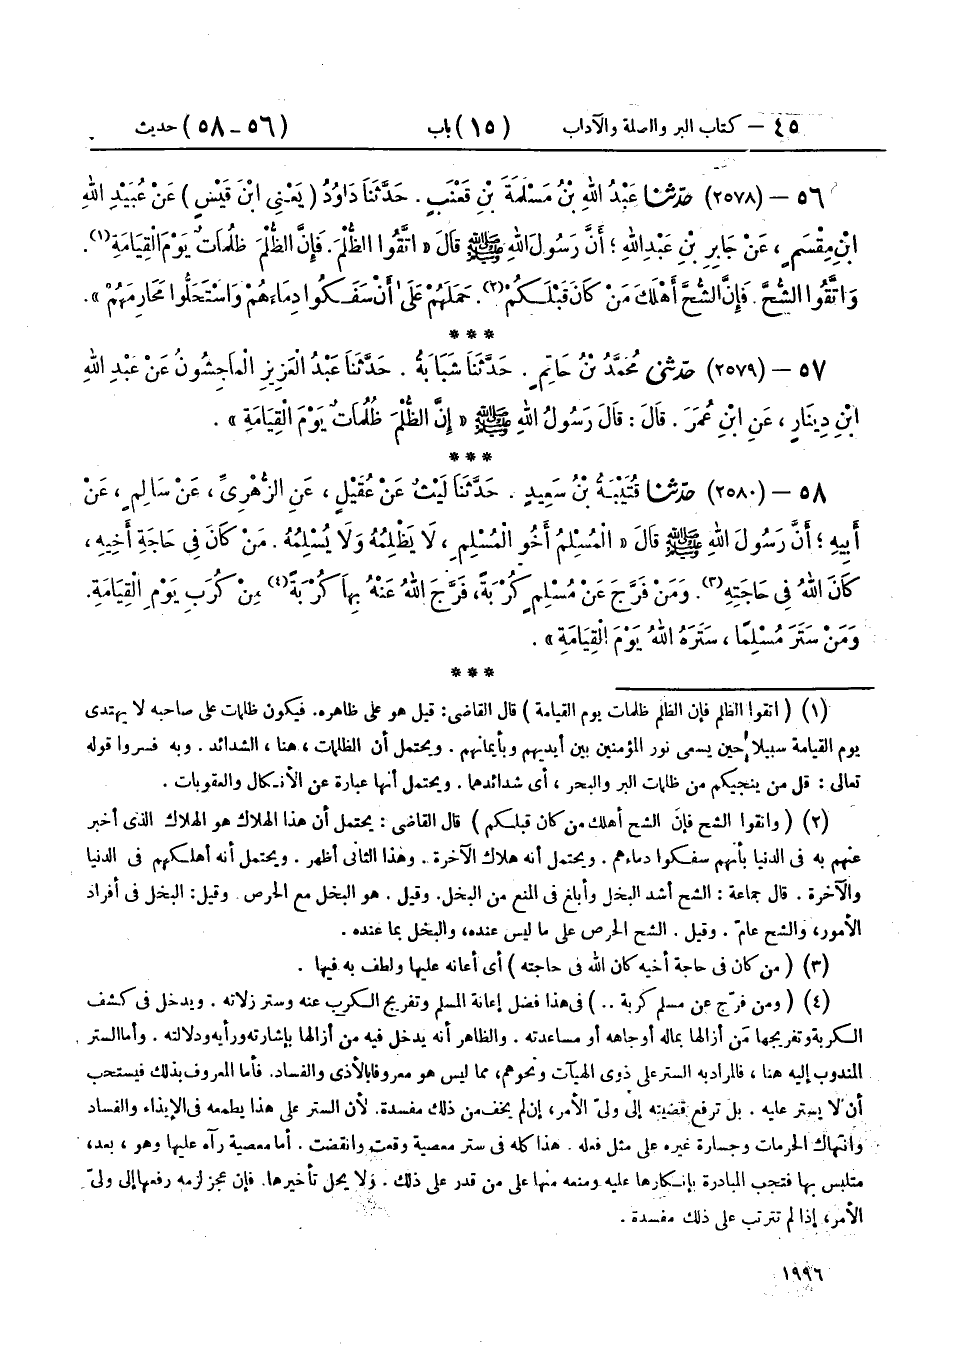 ٤٥ — كتاب البر والصلة والآداب (١٥) باب (٥٦ – ٥٨) حديث
٥٦ — (٢٥٧٨) حَدَّثَنَا عَبْدُ اللهِ بْنُ مَسْلَمَةَ بْنِ قَعْنَبٍ . حَدَّثَنَا دَاوُدُ (يَعْنِي ابْنَ قَيْسٍ) عَنْ عُبَيْدِ اللهِ
ابْنِ مِقْسَمٍ ، عَنْ جَابِرِ بْنِ عَبْدِ اللهِ ؛ أَنَّ رَسُولَ اللهِ ﷺ قَالَ « اتَّقُوا الظُّلْمَ. فَإِنَّ الظُّلْمَ ظُلُمَاتٌ يَوْمَ الْقِيَامَةِ(١).
وَاتَّقُوا الشُّحَّ . فَإِنَّ الشُّحَّ أَهْلَكَ مَنْ كَانَ قَبْلَكُمْ(٢). حَمَلَهُمْ عَلَى أَنْ سَفَكُوا دِمَاءَهُمْ وَاسْتَحَلُّوا مَحَارِمَهُمْ ».
* * *
٥٧ — (٢٥٧٩) حَدَّثَنِي مُحَمَّدُ بْنُ حَاتِمٍ . حَدَّثَنَا شَبَابَةُ . حَدَّثَنَا عَبْدُ الْعَزِيزِ الْمَاجِشُونُ عَنْ عَبْدِ اللهِ
ابْنِ دِينَارٍ ، عَنِ ابْنِ عُمَرَ . قَالَ : قَالَ رَسُولُ اللهِ ﷺ « إِنَّ الظُّلْمَ ظُلُمَاتٌ يَوْمَ الْقِيَامَةِ » .
* * *
٥٨ — (٢٥٨٠) حَدَّثَنَا قُتَيْبَةُ بْنُ سَعِيدٍ . حَدَّثَنَا لَيْثٌ عَنْ عُقَيْلٍ ، عَنِ الزُّهْرِيِّ ، عَنْ سَالِمٍ ، عَنْ
أَبِيهِ ؛ أَنَّ رَسُولَ اللهِ ﷺ قَالَ « الْمُسْلِمُ أَخُو الْمُسْلِمِ ، لَا يَظْلِمُهُ وَلَا يُسْلِمُهُ . مَنْ كَانَ فِي حَاجَةِ أَخِيهِ ،
كَانَ اللهُ فِي حَاجَتِهِ(٣). وَمَنْ فَرَّجَ عَنْ مُسْلِمٍ كُرْبَةً، فَرَّجَ اللهُ عَنْهُ بِهَا كُرْبَةً(٤) مِنْ كُرَبِ يَوْمِ الْقِيَامَةِ.
وَمَنْ سَتَرَ مُسْلِمًا ، سَتَرَهُ اللهُ يَوْمَ الْقِيَامَةِ » .
* * *
(١) ( اتقوا الظلم فإن الظلم ظلمات يوم القيامة ) قال القاضي: قيل هو على ظاهره. فيكون ظلمات على صاحبه لا يهتدى
يوم القيامة سبيلا حين يسمى نور المؤمنين بين أيديهم وبأيمانهم . ويحتمل أن الظلمات ، هنا ، الشدائد . وبه فسروا قوله
تعالى : قل من ينجيكم من ظلمات البر والبحر ، أى شدائدهما . ويحتمل أنها عبارة عن الأنكال والعقوبات .
(٢) ( واتقوا الشح فإن الشح أهلك من كان قبلكم ) قال القاضى : يحتمل أن هذا الهلاك هو الهلاك الذى أخبر
عنهم به فى الدنيا بأنهم سفكوا دماءهم . ويحتمل أنه هلاك الآخرة . وهذا الثانى أظهر . ويحتمل أنه أهلكهم فى الدنيا
والآخرة . قال جماعة : الشح أشد البخل وأبلغ فى المنع من البخل. وقيل . هو البخل مع الحرص وقيل: البخل فى أفراد
الأمور، والشح عامّ . وقيل . الشح الحرص على ما ليس عنده، والبخل بما عنده .
(٣) ( من كان فى حاجة أخيه كان الله فى حاجته ) أى أعانه عليها ولطف به فيها .
(٤) ( ومن فرّج عن مسلم كربة .. ) فى هذا فضل إعانة المسلم وتفريج الكرب عنه وستر زلاته . ويدخل فى كشف
الكربة وتفريجها مَن أزالها بماله أو جاهه أو مساعدته . والظاهر أنه يدخل فيه من أزالها بإشارته ورأيه ودلالته . وأما الستر
المندوب إليه هنا ، فالمراد به الستر على ذوى الهيآت ونحوهم، مما ليس هو معروفا بالأذى والفساد. فأما المعروف بذلك فيستحب
أن لا يستر عليه . بل ترفع قضيته إلى ولىّ الأمر، إن لم يخف من ذلك مفسدة. لأن الستر على هذا يطمعه فى الإيذاء والفساد
وانتهاك الحرمات وجسارة غيره على مثل فعله . هذا كله فى ستر معصية وقعت وانقضت . أما معصية رآه عليها وهو ، بعد،
متلبس بها فتجب المبادرة بإنكارها عليه ومنعه منها على من قدر على ذلك . ولا يحل تأخيرها. فإن عجز لزمه رفعها إلى ولىّ
الأمر، إذا لم تترتب على ذلك مفسدة .
١٩٩٦